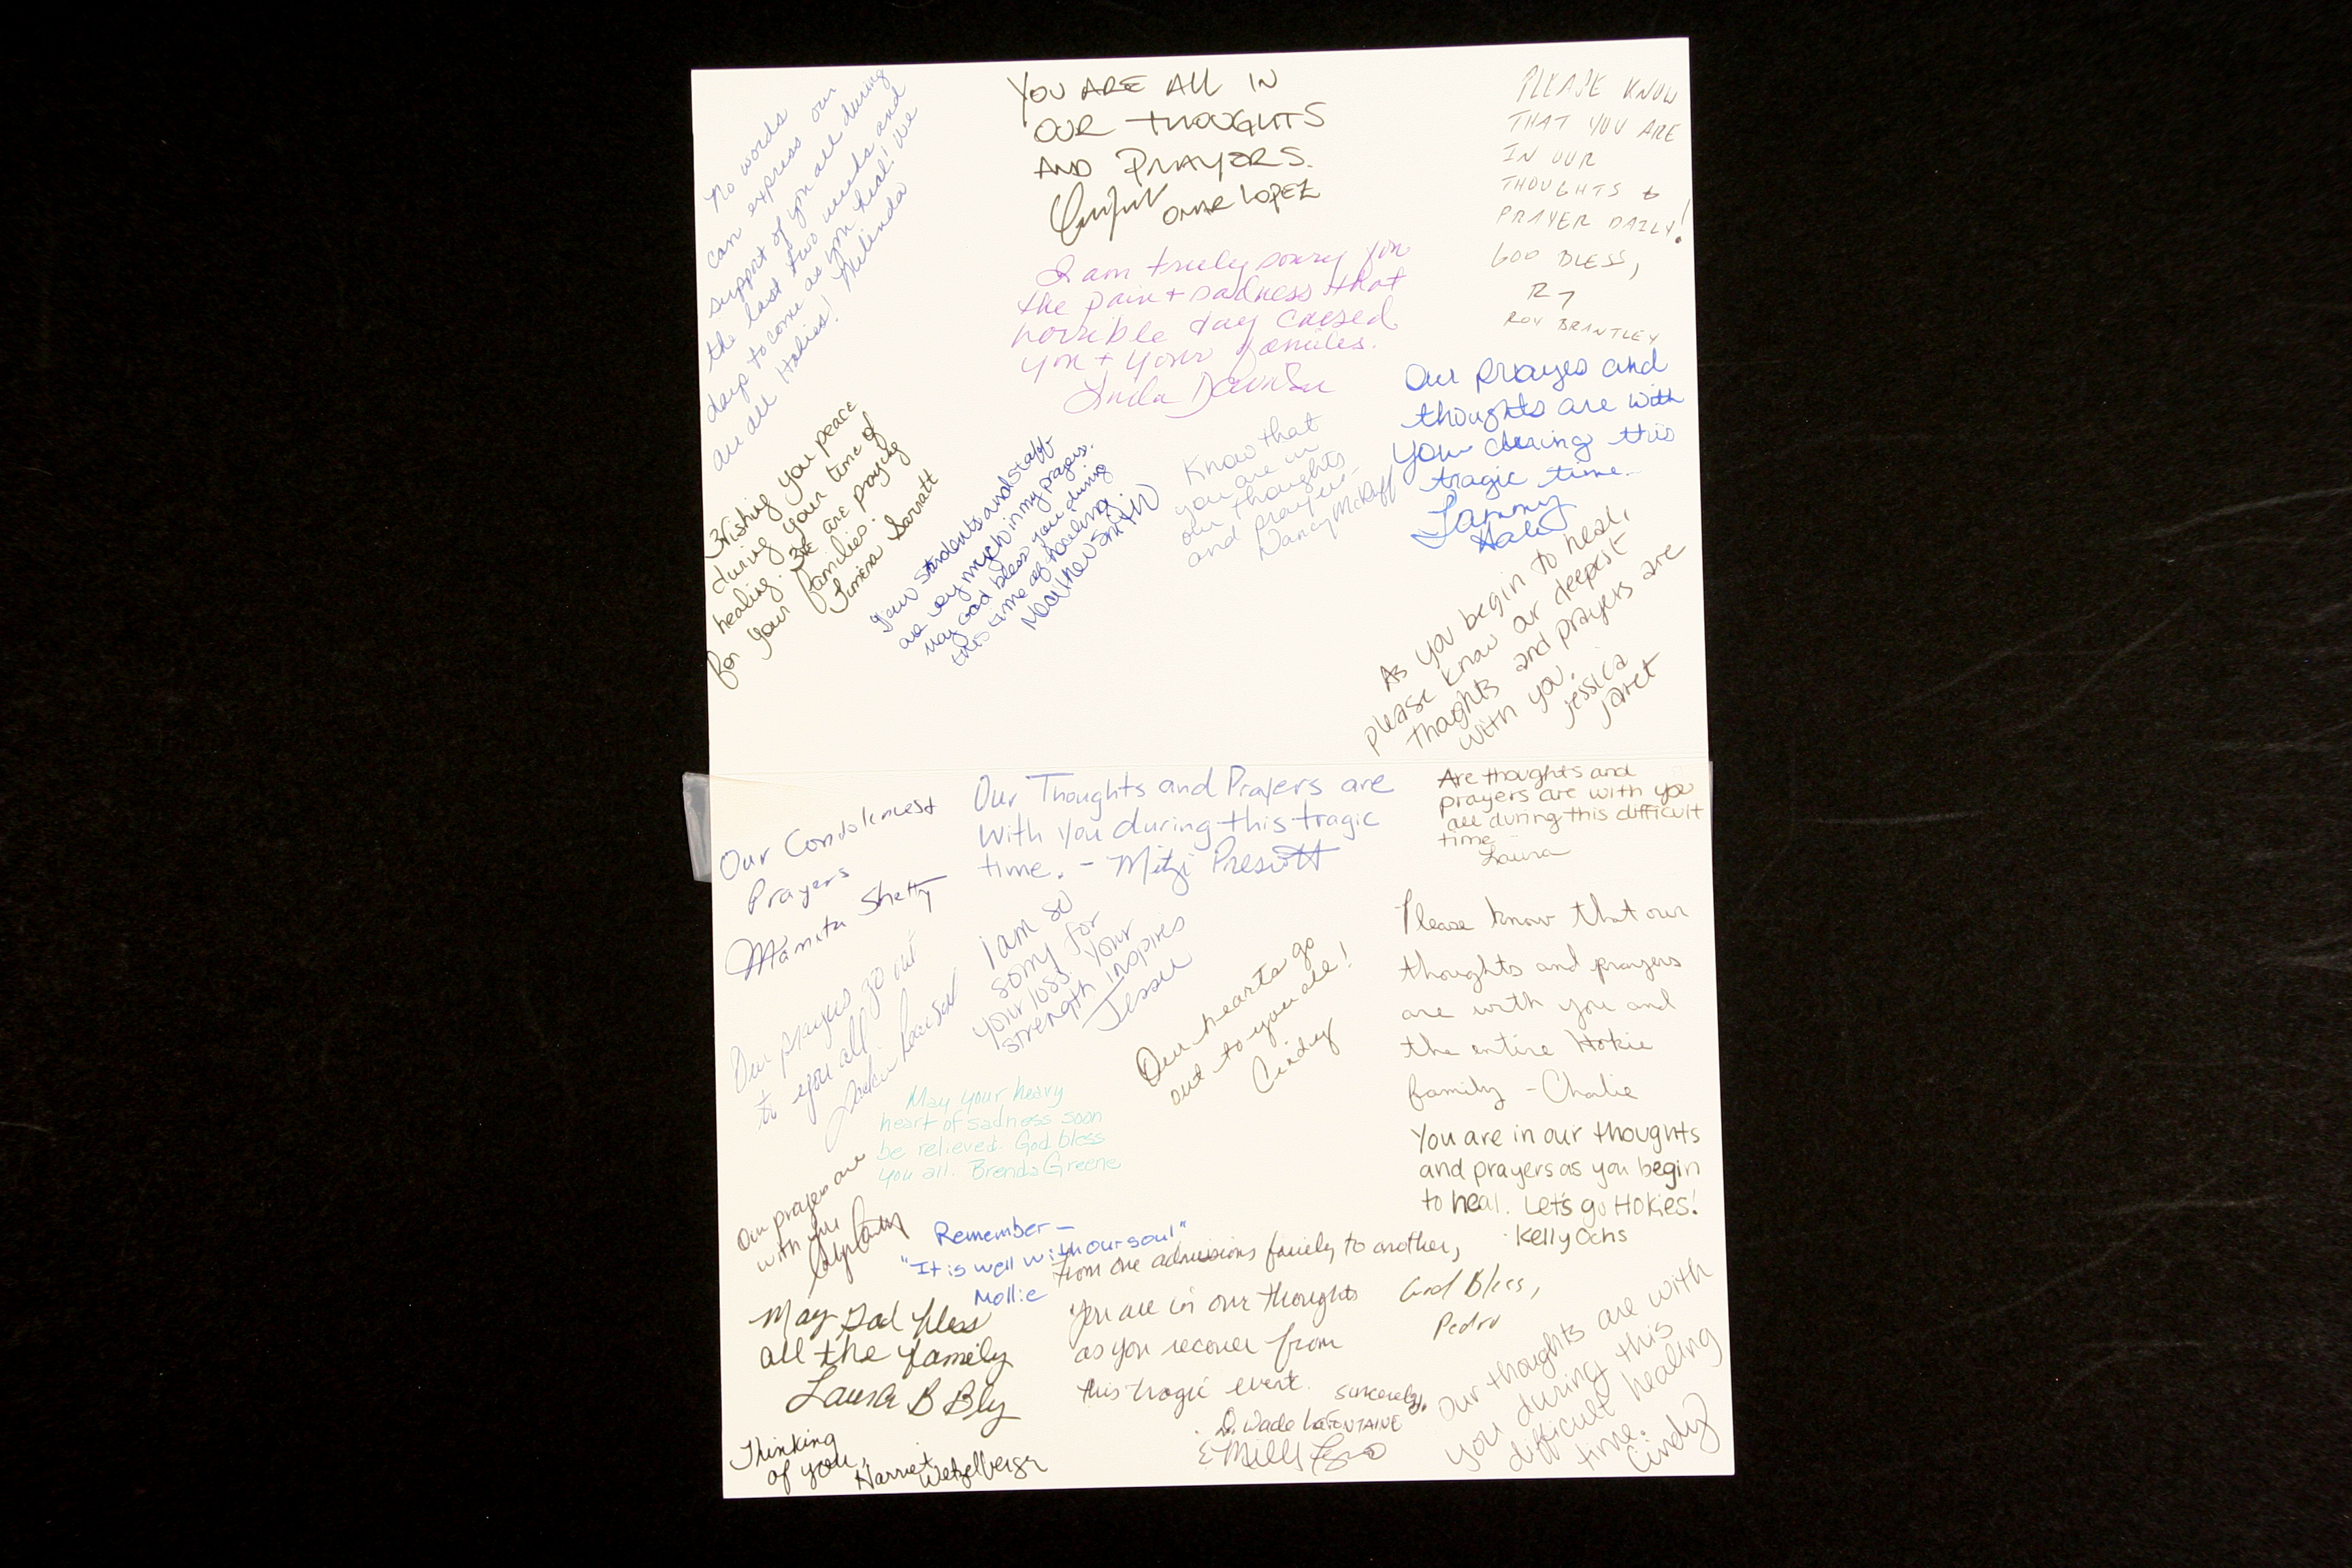 No words
can express our
support of you all during
the last two weeks and
days to come as you heal! We
are all Hokies! Melinda
YOU ARE ALL IN
OUR THOUGHTS
AND PRAYERS.
OMAR LOPEZ
PLEASE KNOW
THAT YOU ARE
IN OUR
THOUGHTS &
PRAYER DAILY!
GOD BLESS,
ROY BRANTLEY
I am truly sorry for
the pain + sadness that
horrible day caused
you + your families.
Linda
Our prayes and
thoughts are with
your during this
tragic time.
Tammy
Hale
Wishing you peace
during your time of
healing. We are praying
for your families.
Sarratt
Your students and staff
are very much in my prayers.
May God bless you during
this time of healing.
Know that
you are in
our thoughts
and prayers-
Nancy McDuff
As you begin to heal,
please know our deepest
thoughts and prayers are
with you.
Jessica
Janet
Our Condolences &
Prayers
Mamata Shetty
Our Thoughts and Prayers are
With you during this tragic
time. - Mitzi Prescott
Are thoughts and
prayers are with you
all during this difficult
time -
Laura
Our prayers go out
to you all.
I am so
sorry for
your loss. Your
strength inspires
Jessie
Our hearts go
out to you all!
Cindy
Please know that our
thoughts and prayers
are with you and
the entire Hokie
family - Charlie
May your heavy
heart of sadness soon
be relieved. God bless
you all. Brenda Greene
You are in our thoughts
and prayers as you begin
to heal. Let's go Hokies!
Kelly Ochs
Our prayers are
with you
Remember -
"It is well with our soul"
Mollie
From one admissions family to another,
You are in our thoughts
as you recover from
this tragic event.
Sincerely,
D. Wade LaFONTAINE
God Bless,
Pedro
May God bless
all the family
Laura B Bly
Thinking
of you,
Harriet
Wetzelberger
Our thoughts are with
you during this
difficult healing
time.
Cindy